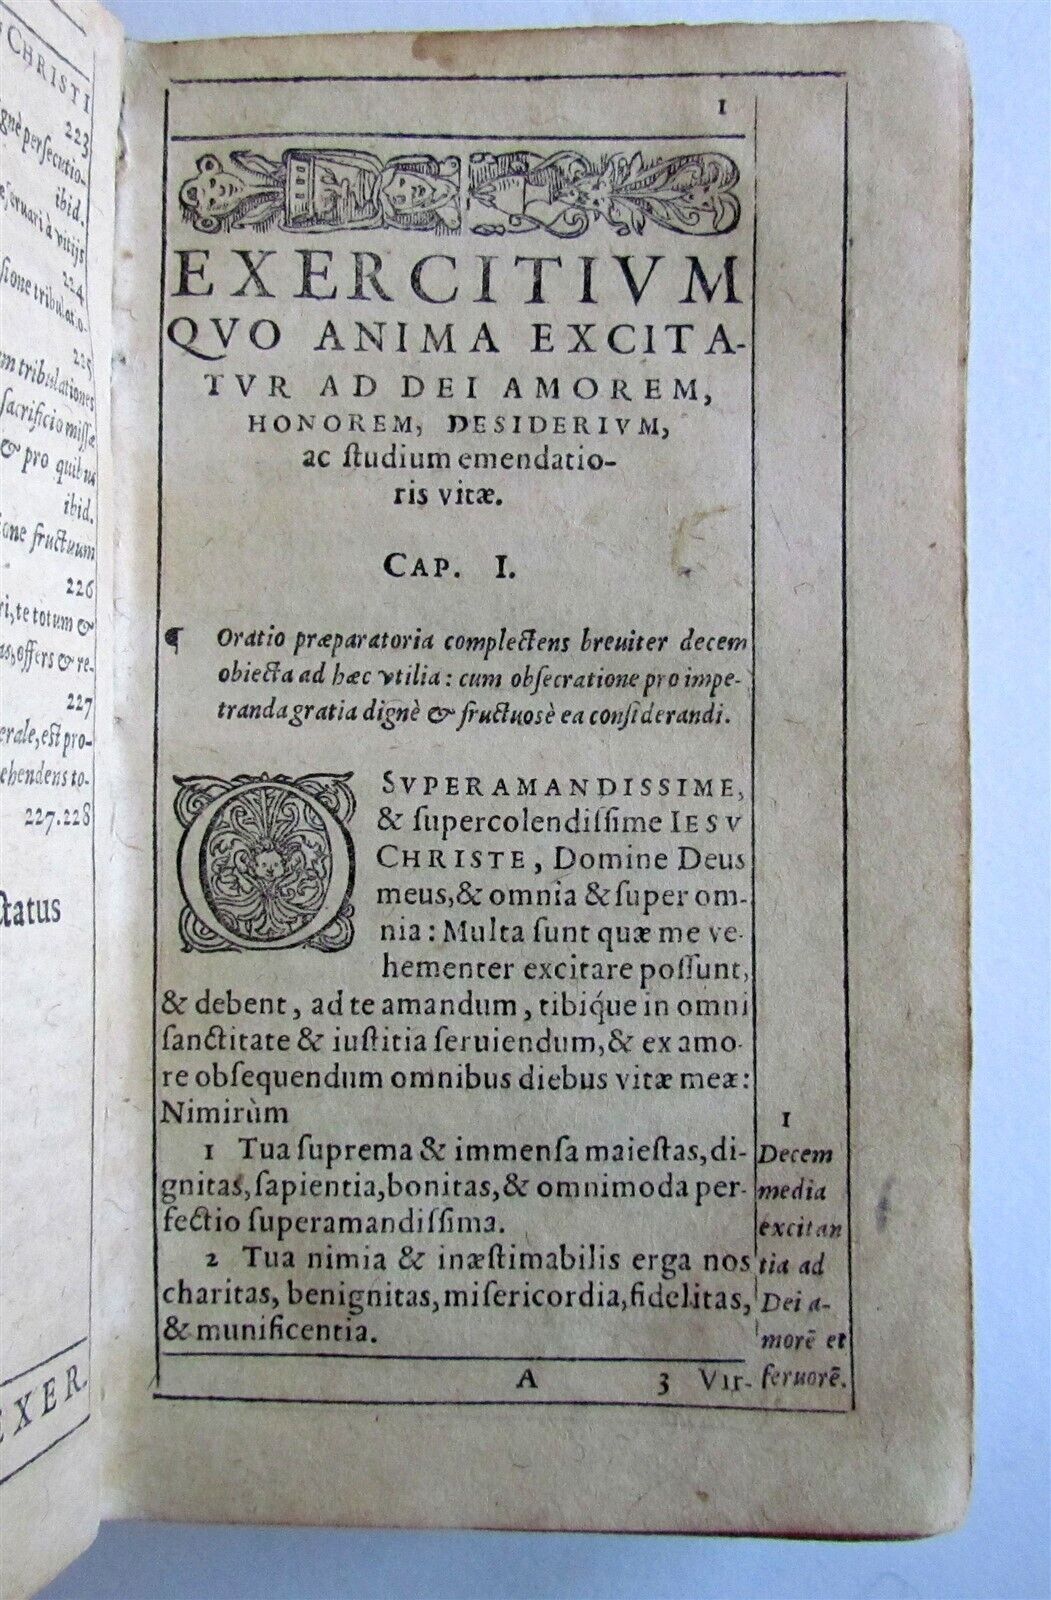 CHRISTI
223
gnè persecutio-
ibid.
eseruari à vitijs
224
sione tribulatio-
225
m tribulationes
sacrificio missæ
& pro quibus
ibid.
ione fructuum
226
ri, te totum &
as, offers & re-
227
erale, est pro-
ehendens to-
227.228
ctatus
EXER
1
EXERCITIVM
QVO ANIMA EXCITA-
TVR AD DEI AMOREM,
HONOREM, DESIDERIVM,
ac studium emendatio-
ris vitæ.
CAP. I.
¶ Oratio præparatoria complectens breuiter decem
obiecta ad hæc vtilia: cum obsecratione pro impe-
tranda gratia dignè & fructuosè ea considerandi.
O SVPERAMANDISSIME,
& supercolendissime IESV
CHRISTE, Domine Deus
meus, & omnia & super om-
nia: Multa sunt quæ me ve-
hementer excitare possunt,
& debent, ad te amandum, tibíque in omni
sanctitate & iustitia seruiendum, & ex amo-
re obsequendum omnibus diebus vitæ meæ:
Nimirùm
1 Tua suprema & immensa maiestas, di-
gnitas, sapientia, bonitas, & omnimoda per-
fectio superamandissima.
2 Tua nimia & inæstimabilis erga nos
charitas, benignitas, misericordia, fidelitas,
& munificentia.
A 3 Vir-
1
Decem
media
excitan
tia ad
Dei a-
morē et
feruorē.